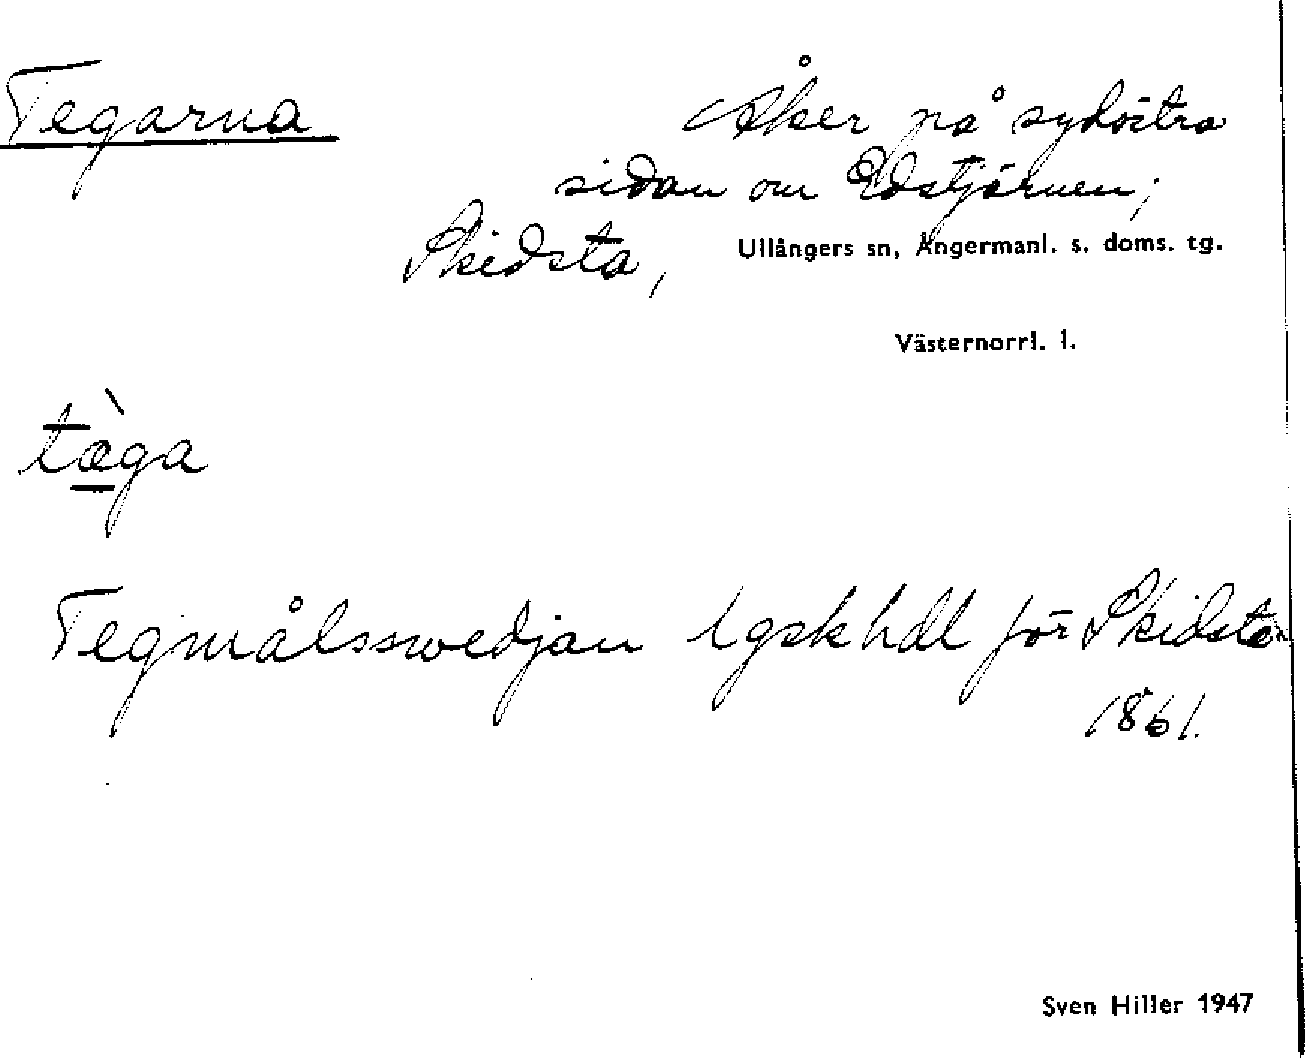 Tegarna
Åker på sydöstra
sidan om Edstjärnen;
Skidsta,
Ullångers sn, Ångermanl. s. doms. tg.
Västernorrl. l.
tæ̀ga
Tegmålsswedjan lgsk hdl för Skidsta
1861.
Sven Hiller 1947